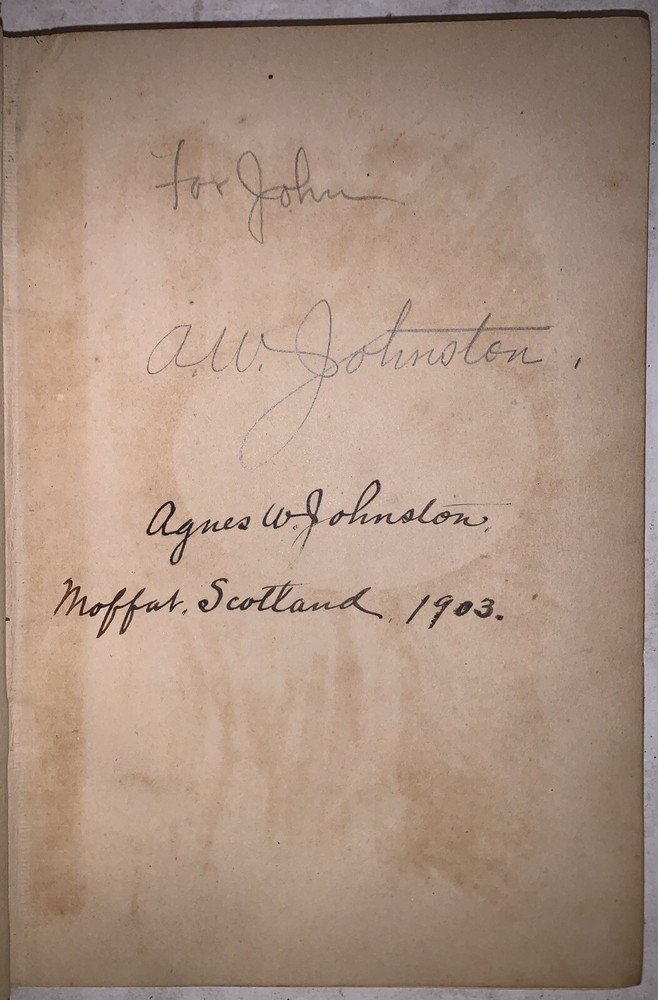 For John
A.W. Johnston.
Agnes W. Johnston.
Moffat. Scotland. 1903.